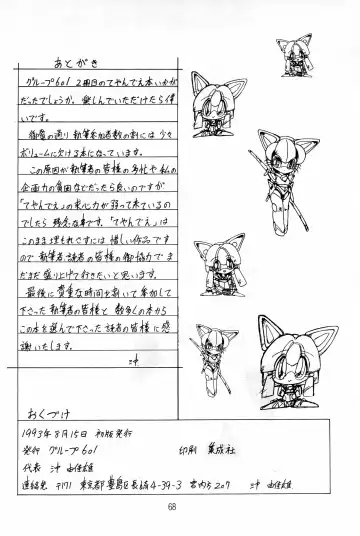 あとがき
グループ601 2冊目のてやんでえ本いかが
だったでしょうか。楽しんでいただけたら倖
いです。
御覧の通り執筆参加者数の割には少々
ボリュームに欠ける本になっています。
この原因が執筆者の皆様の多忙や私の
企画力の貧困などだったら良いのですが
「てやんでえ」の求心力が弱って来ているの
でしたら残念な事です。「てやんでえ」は
このまま埋もれさすには惜しい作品です
ので執筆者、読者の皆様の御協力でま
だまだ盛り上げて行きたいと思います。
最後に貴重な時間を割いて参加して
下さった執筆者の皆様と数多くの本から
この本を選んで下さった読者の皆様に感
謝いたします。
沖
おくづけ
1993年8月15日 初版発行
発行 グループ601 印刷 集成社
代表 沖 由佳雄
連絡先 〒171 東京都豊島区長崎4-39-3 宮内方207 沖 由佳雄
68